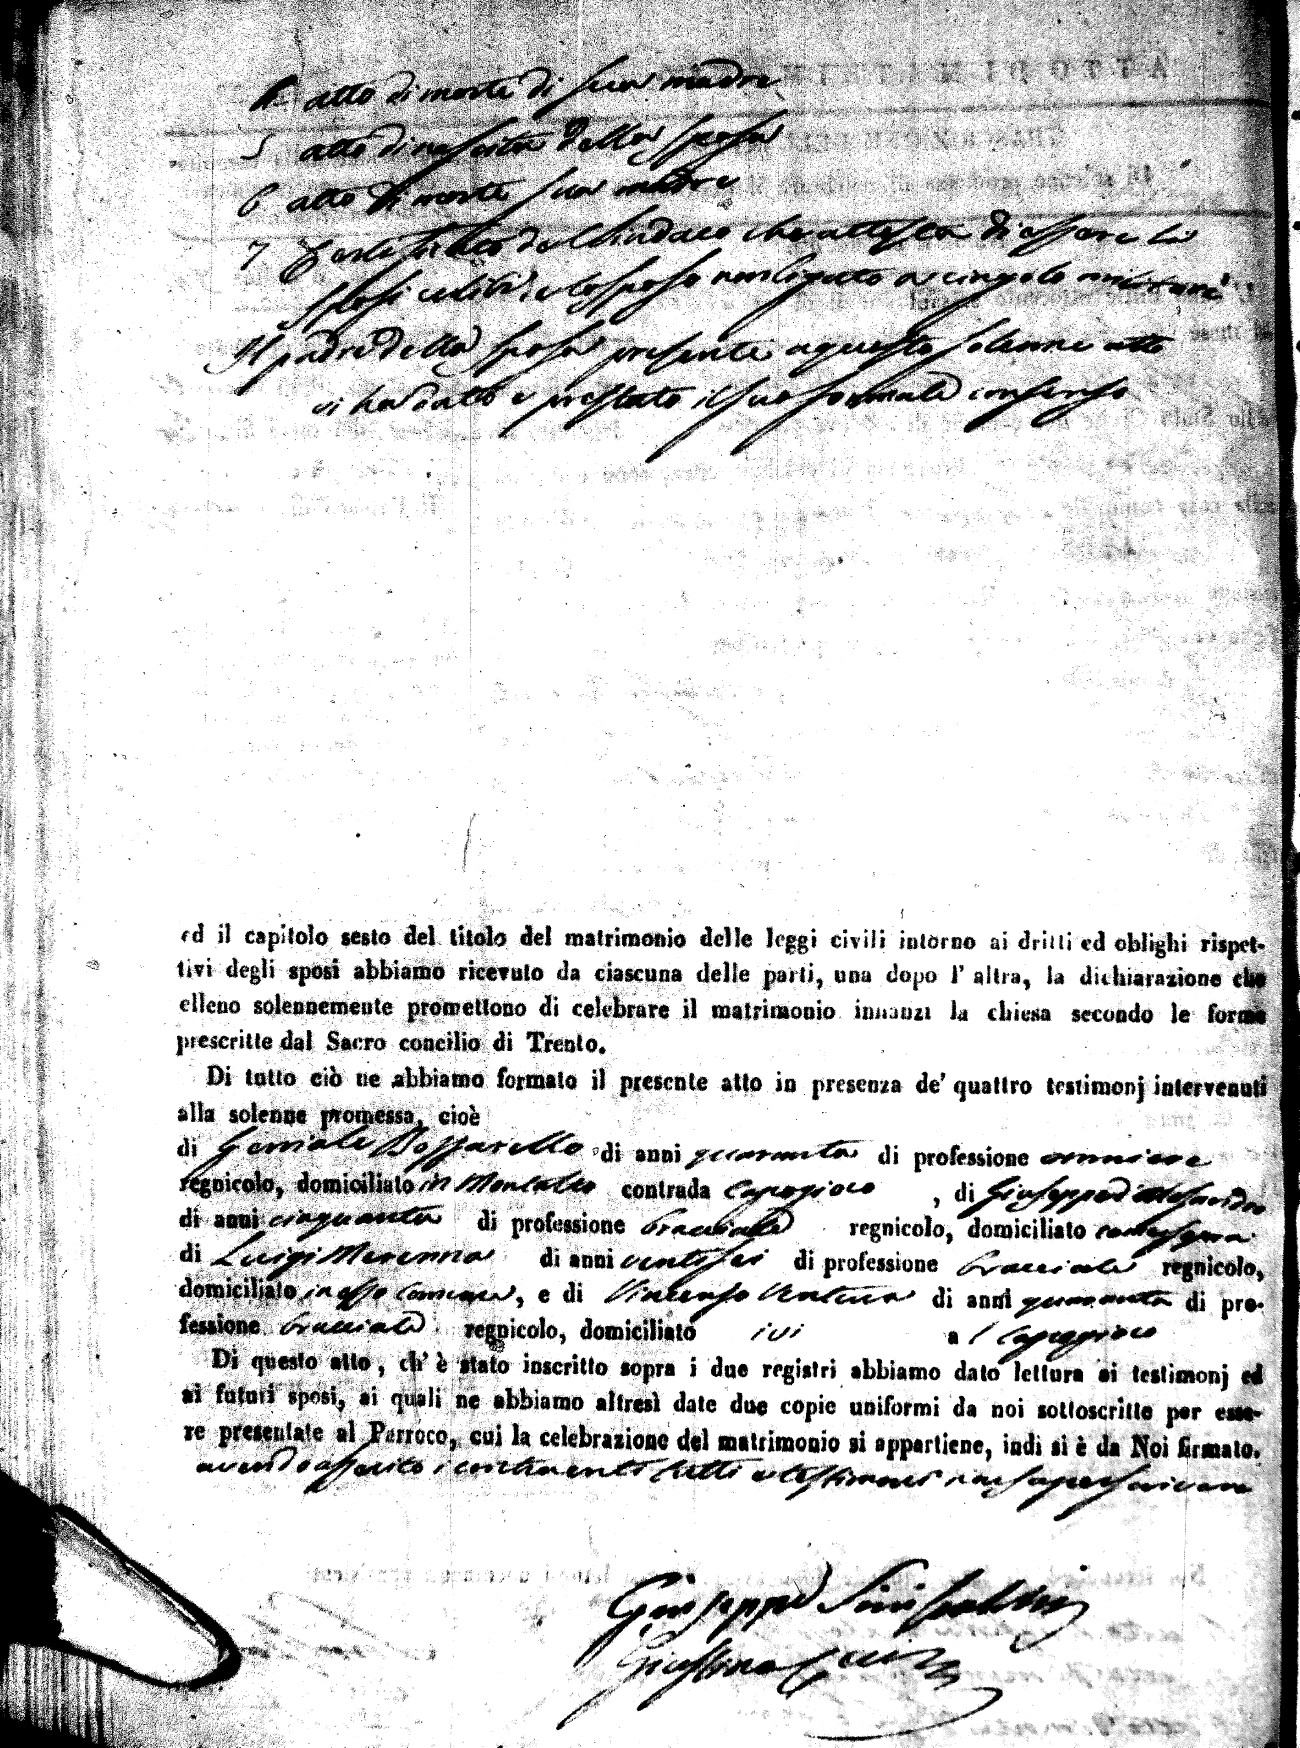 4 atto di morte di sua madre
5 atto di nascita della sposa
6 atto di morte sua madre
7 Certificato del Sindaco che attesta di essere li
sposi celibi, e lo sposo non ligato a cingolo militare
Il padre della sposa presente a questo solenne atto
ci ha dato e prestato il suo formale consenso
ed il capitolo sesto del titolo del matrimonio delle leggi civili intorno ai dritti ed oblighi rispet-
tivi degli sposi abbiamo ricevuto da ciascuna delle parti, una dopo l' altra, la dichiarazione che
elleno solennemente promettono di celebrare il matrimonio innanzi la chiesa secondo le forme
prescritte dal Sacro concilio di Trento.
Di tutto ciò ne abbiamo formato il presente atto in presenza de' quattro testimonj intervenuti
alla solenne promessa, cioè
di Geniale di anni quaranta di professione
regnicolo, domiciliato in contrada Capogioco , di Giuseppe d'Alesandro
di anni cinquanta di professione bracciale regnicolo, domiciliato
di Luigi Merenna di anni ventisei di professione bracciale regnicolo,
domiciliato in esso comune, e di Vincenzo Ventura di anni quaranta di pro-
fessione bracciale regnicolo, domiciliato ivi a l Capogioco
Di questo atto, ch' è stato inscritto sopra i due registri abbiamo dato lettura ai testimonj ed
ai futuri sposi, ai quali ne abbiamo altresì date due copie uniformi da noi sottoscritte per esse-
re presentate al Parroco, cui la celebrazione del matrimonio si appartiene, indi si è da Noi firmato.
avendo asserito i contraenti tutti e testimoni non saper scrivere
Giuseppe Siniscalchi